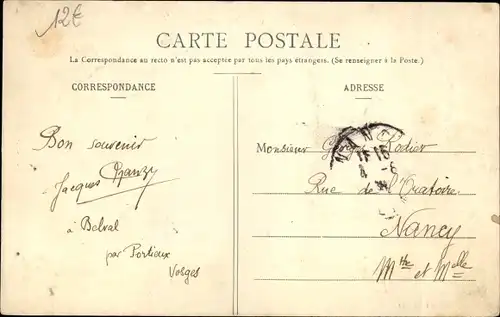 12€
CARTE POSTALE
La Correspondance au recto n'est pas acceptée par tous les pays étrangers. (Se renseigner à la Poste.)
CORRESPONDANCE
ADRESSE
Bon souvenir
Jacques
à Belval
par Portieux
Vosges
Monsieur Rodier
Rue de l'Oratoire
Nancy
Mthe et Mlle
NANCY